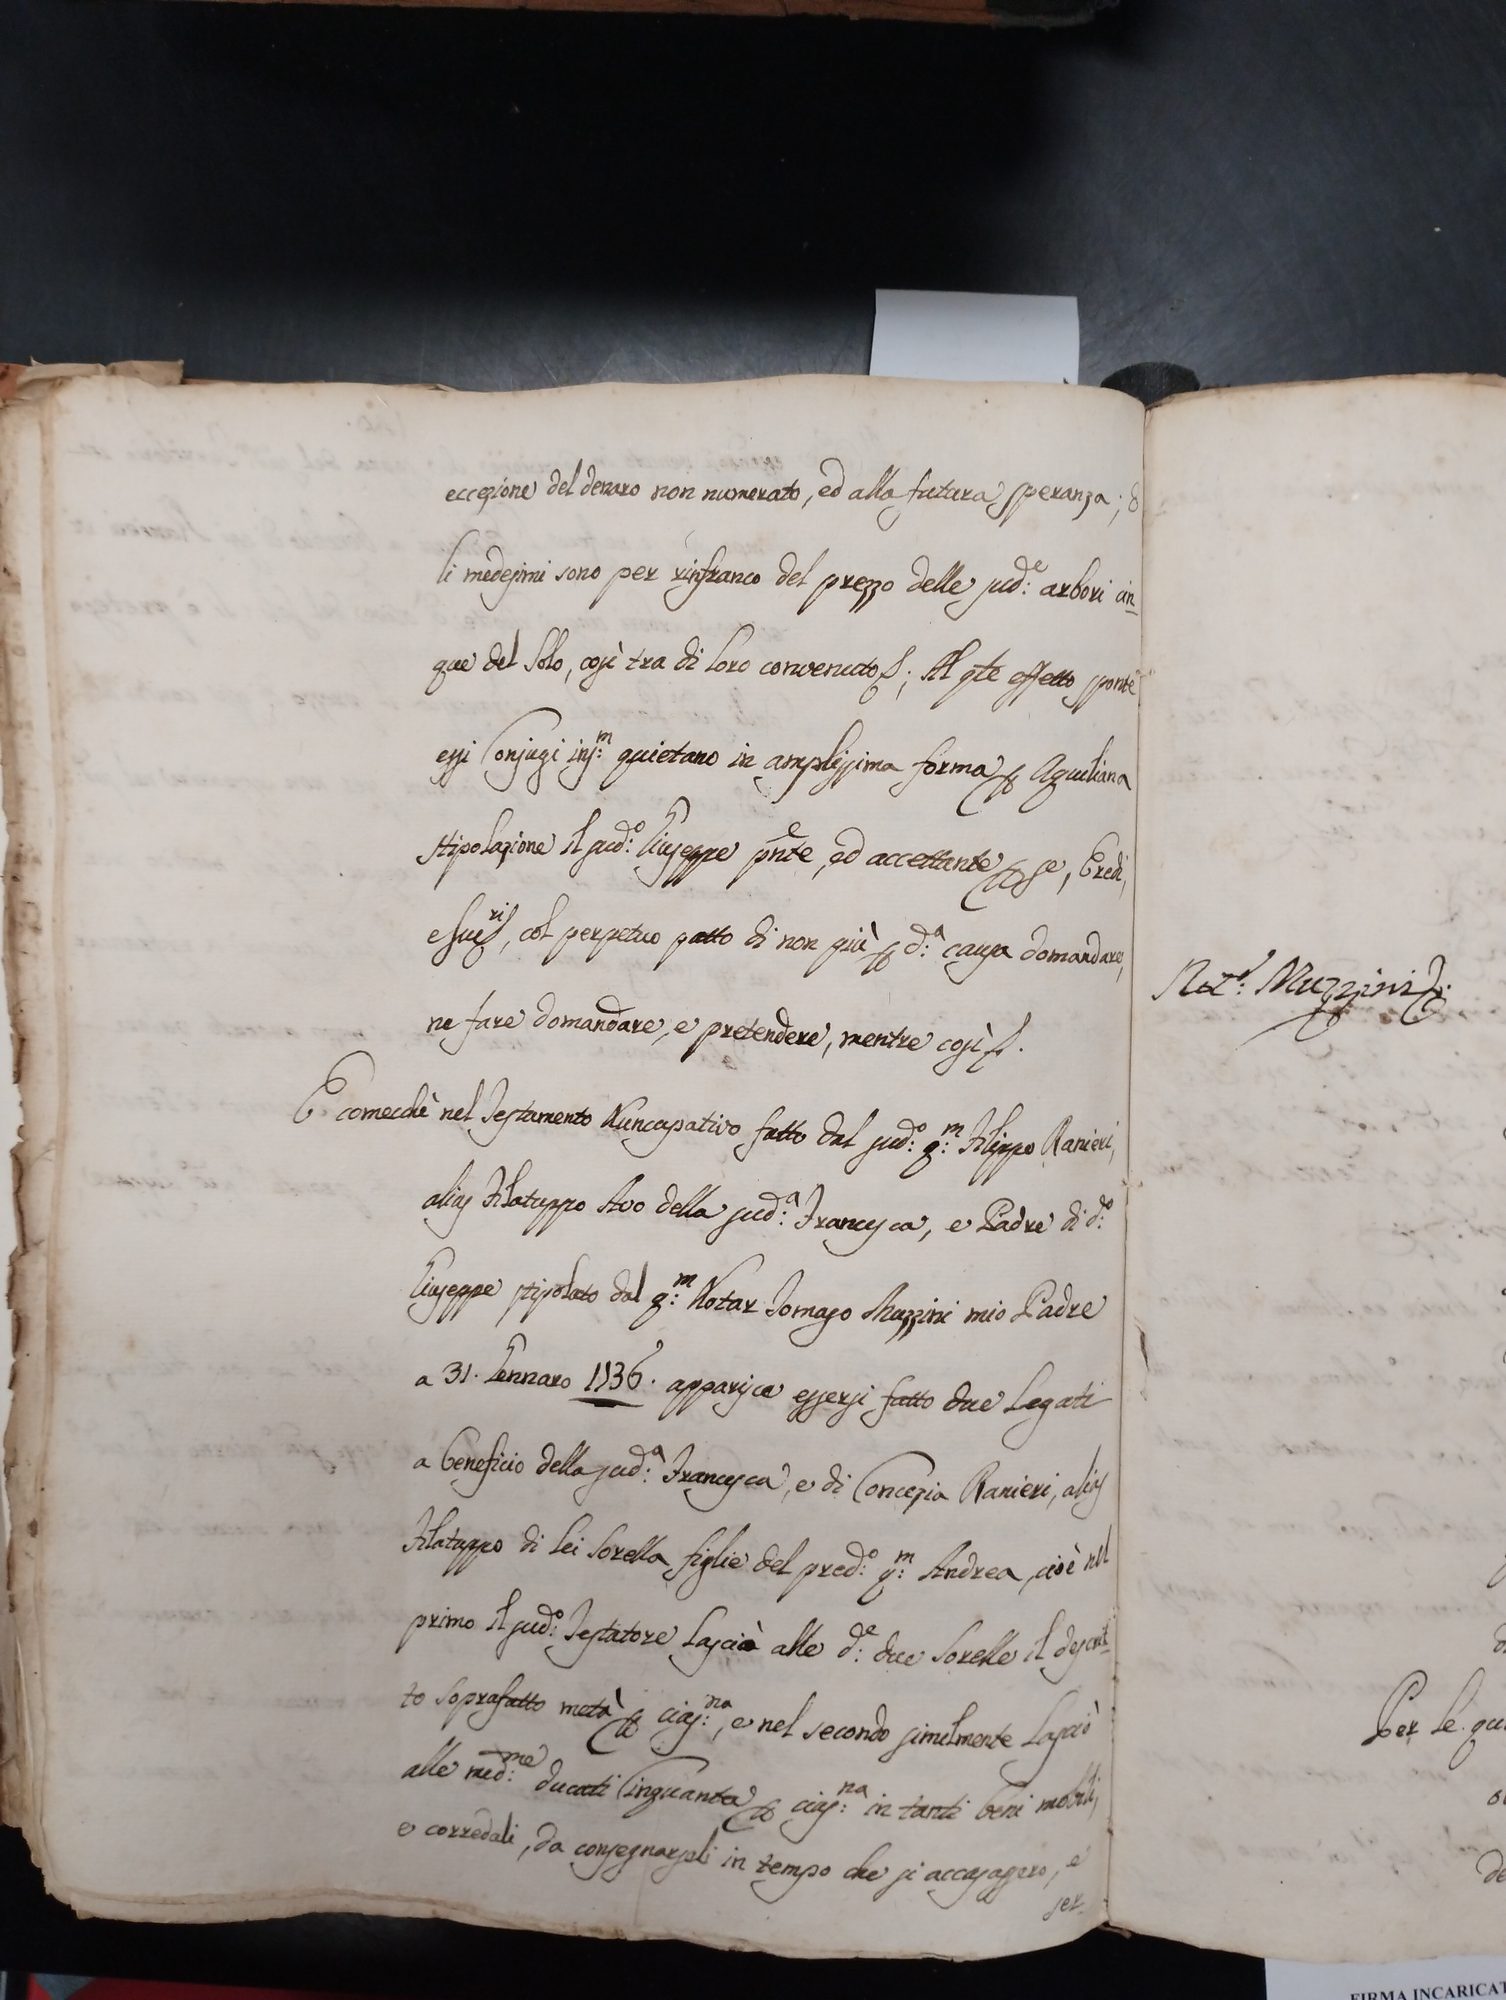 eccezione del denaro non numerato, ed alla futura speranza; e
li medesimi sono per rinfranco del prezzo delle sud:e arbori cin-
que del solo, così tra di loro convenuto; Al qte effetto sponte
essi Conjugi ins:m quietano in amplissima forma p Aquiliana
stipolazione il sud:o Giuseppe pnte, ed accettante p se, Eredi,
e suc:ri, col perpetuo patto di non più p d:a causa domandare,
ne fare domandare, e pretendere, mentre così
E comecchè nel Testamento Nuncupativo fatto dal sud:o q:m Filippo Ranieri,
alias Filatuppo Avo della sud:a Francesca, e Padre di d:o
Giuseppe stipolato dal q:m Notar Tomaso Muzzini mio Padre
a 31. Gennaro 1736. apparisce essersi fatto due Legati
a beneficio della sud:a Francesca, e di Concezia Ranieri, alias
Filatuppo di lei Sorella figlie del pred:o q:m Andrea, cioè nel
primo il sud:o Testatore Lasciò alle d:e due Sorelle il descrit-
to soprafatto metà p cias:na, e nel secondo similmente Lasciò
alle med:me ducati Cinquanta p cias:na in tanti beni mobili,
e corredali, da consegnarseli in tempo che si accasassero, e
ser-
Not:r Muzzini
Per le qu
de
FIRMA INCARICAT